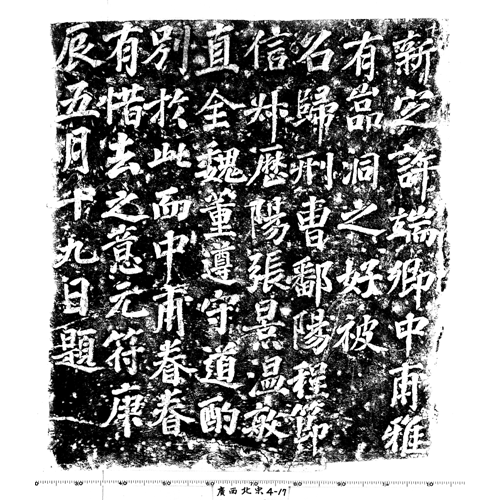 新定許端卿中甫雅
有嵓洞之好被
名歸刑曹鄱陽程節
信叔歷陽張景温敏
直全魏董遵守道酌
別於此而中甫眷眷
有惜去之意元符庚
辰五月十九日題
廣西北宋4-17